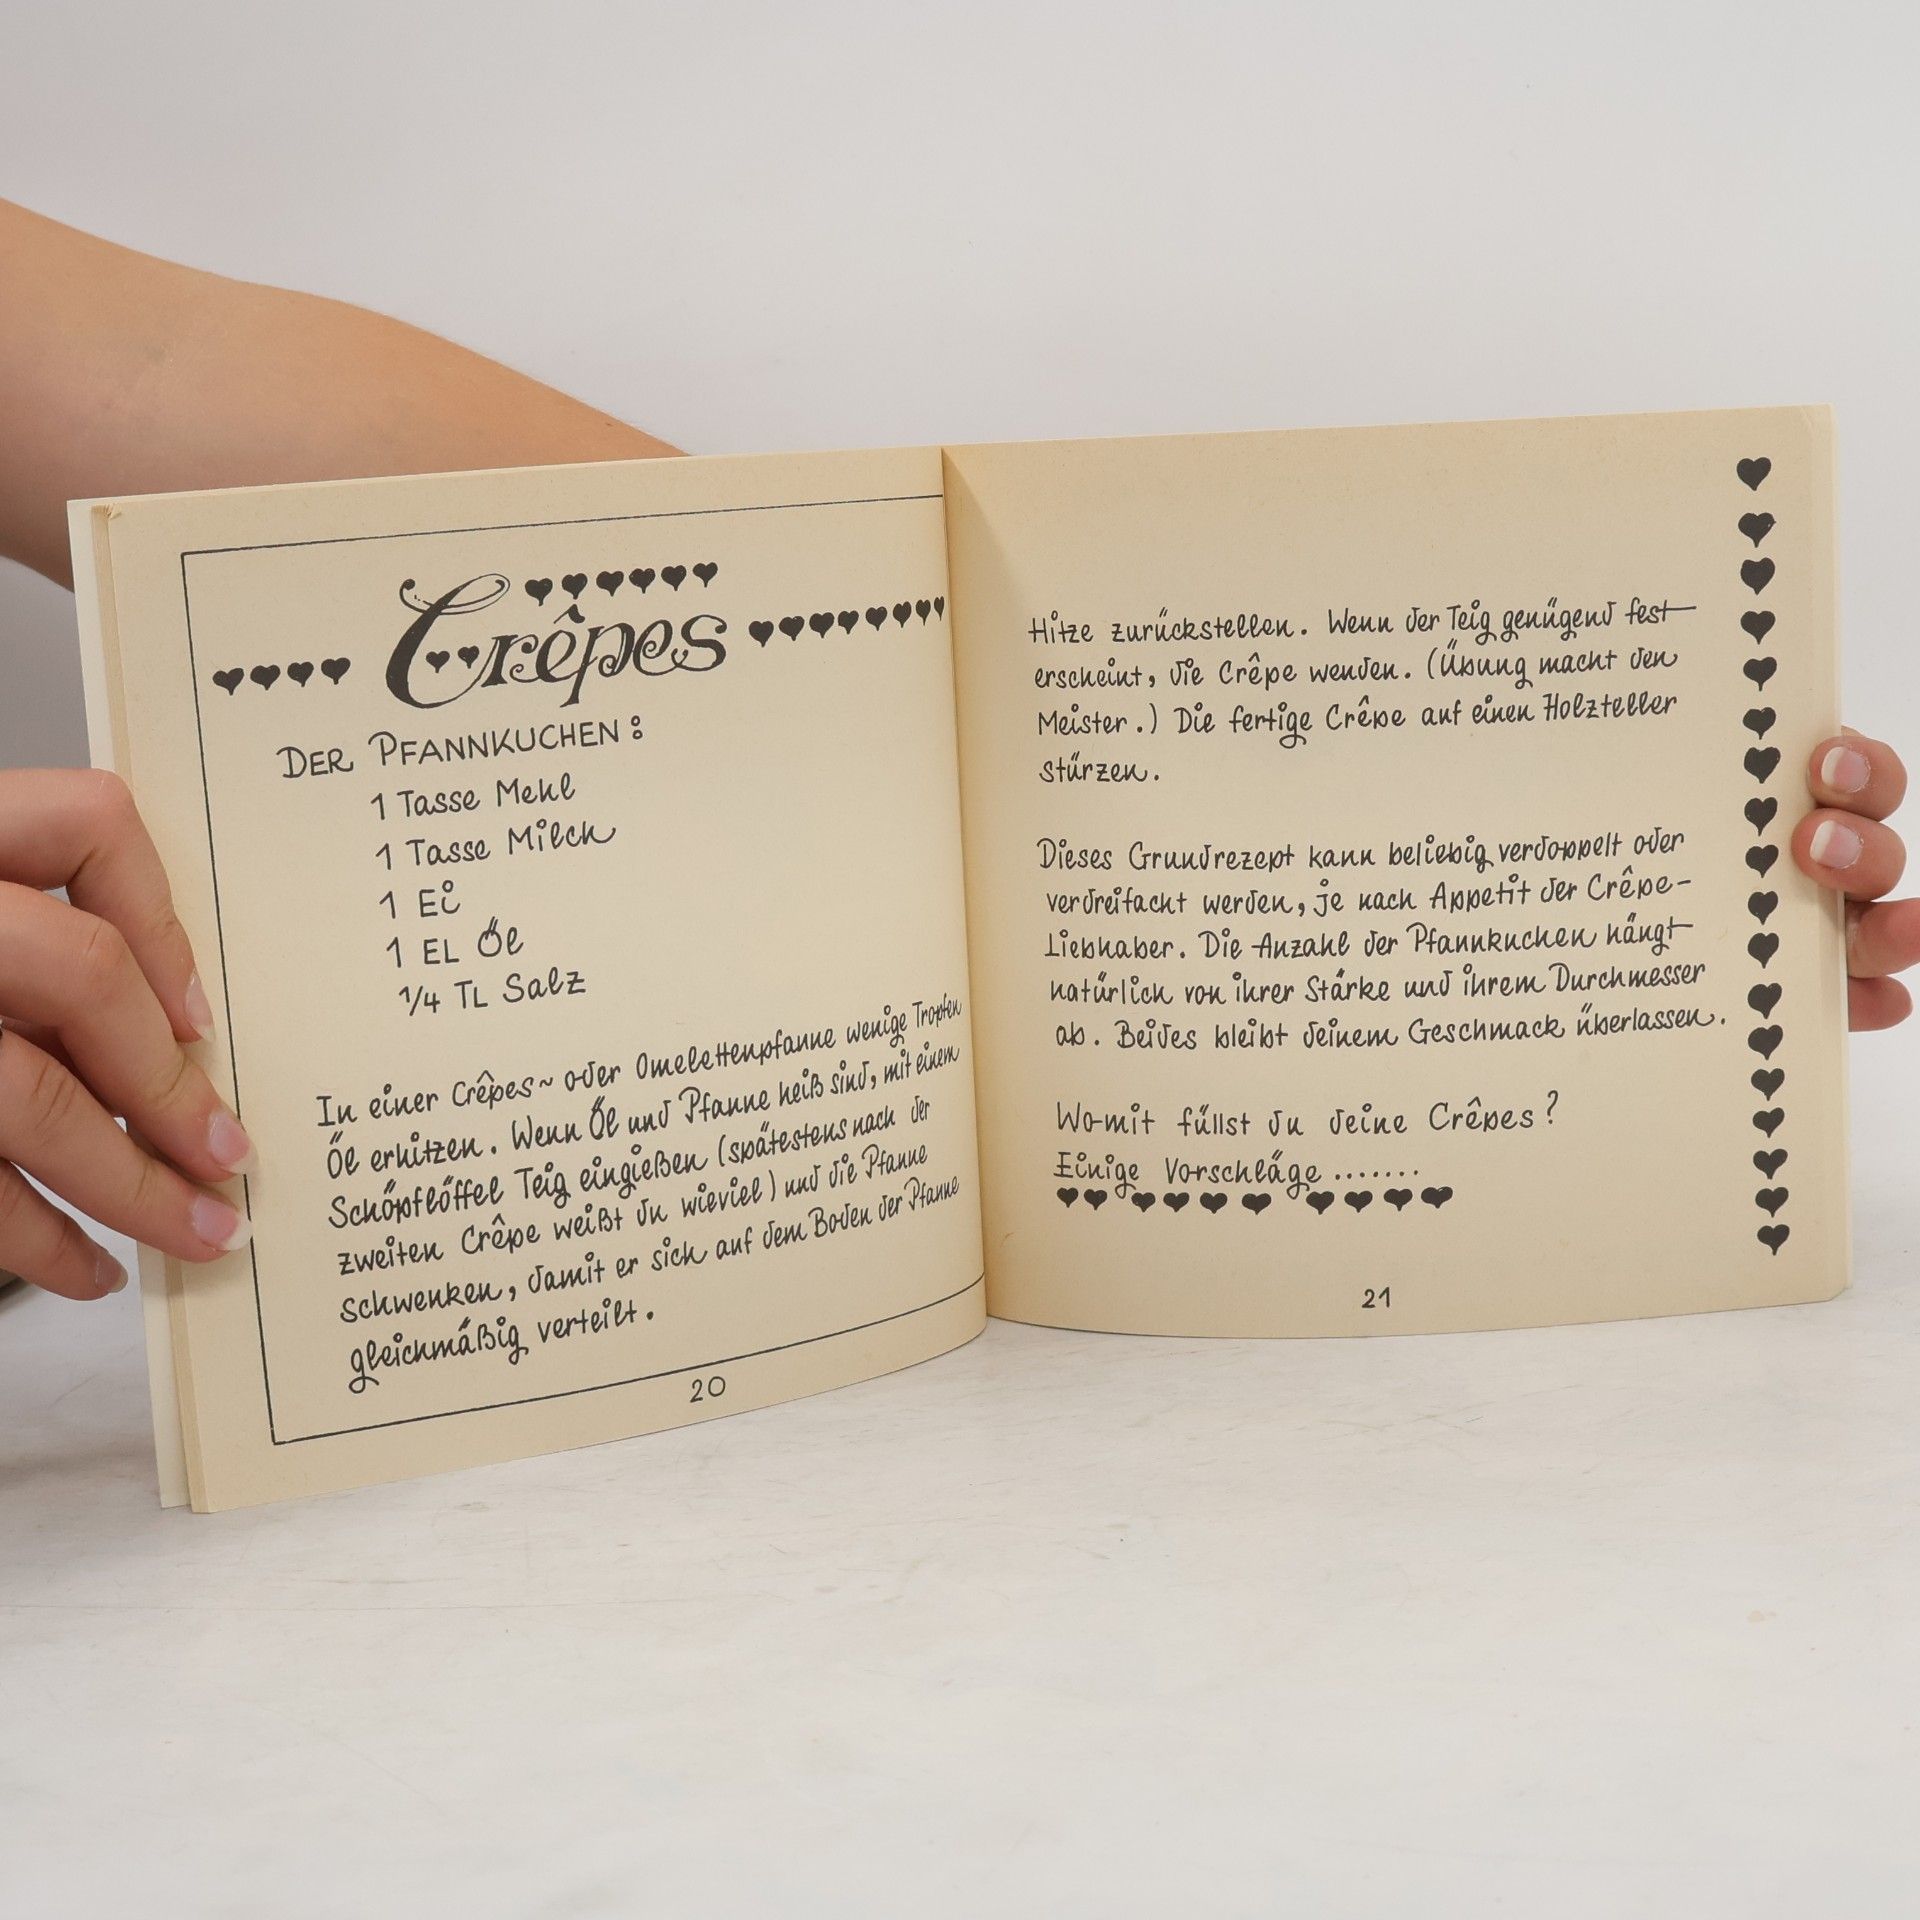 Crêpes
DER PFANNKUCHEN:
1 Tasse Mehl
1 Tasse Milch
1 Ei
1 EL Öl
1/4 TL Salz
In einer Crêpes~ oder Omelettenpfanne wenige Tropfen
Öl erhitzen. Wenn Öl und Pfanne heiß sind, mit einem
Schöpflöffel Teig eingießen (spätestens nach der
zweiten Crêpe weißt du wieviel) und die Pfanne
schwenken, damit er sich auf dem Boden der Pfanne
gleichmäßig verteilt.
20
Hitze zurückstellen. Wenn der Teig genügend fest
erscheint, die Crêpe wenden. (Übung macht den
Meister.) Die fertige Crêpe auf einen Holzteller
stürzen.
Dieses Grundrezept kann beliebig verdoppelt oder
verdreifacht werden, je nach Appetit der Crêpe-
Liebhaber. Die Anzahl der Pfannkuchen hängt
natürlich von ihrer Stärke und ihrem Durchmesser
ab. Beides bleibt deinem Geschmack überlassen.
Womit füllst du deine Crêpes?
Einige Vorschläge.......
21